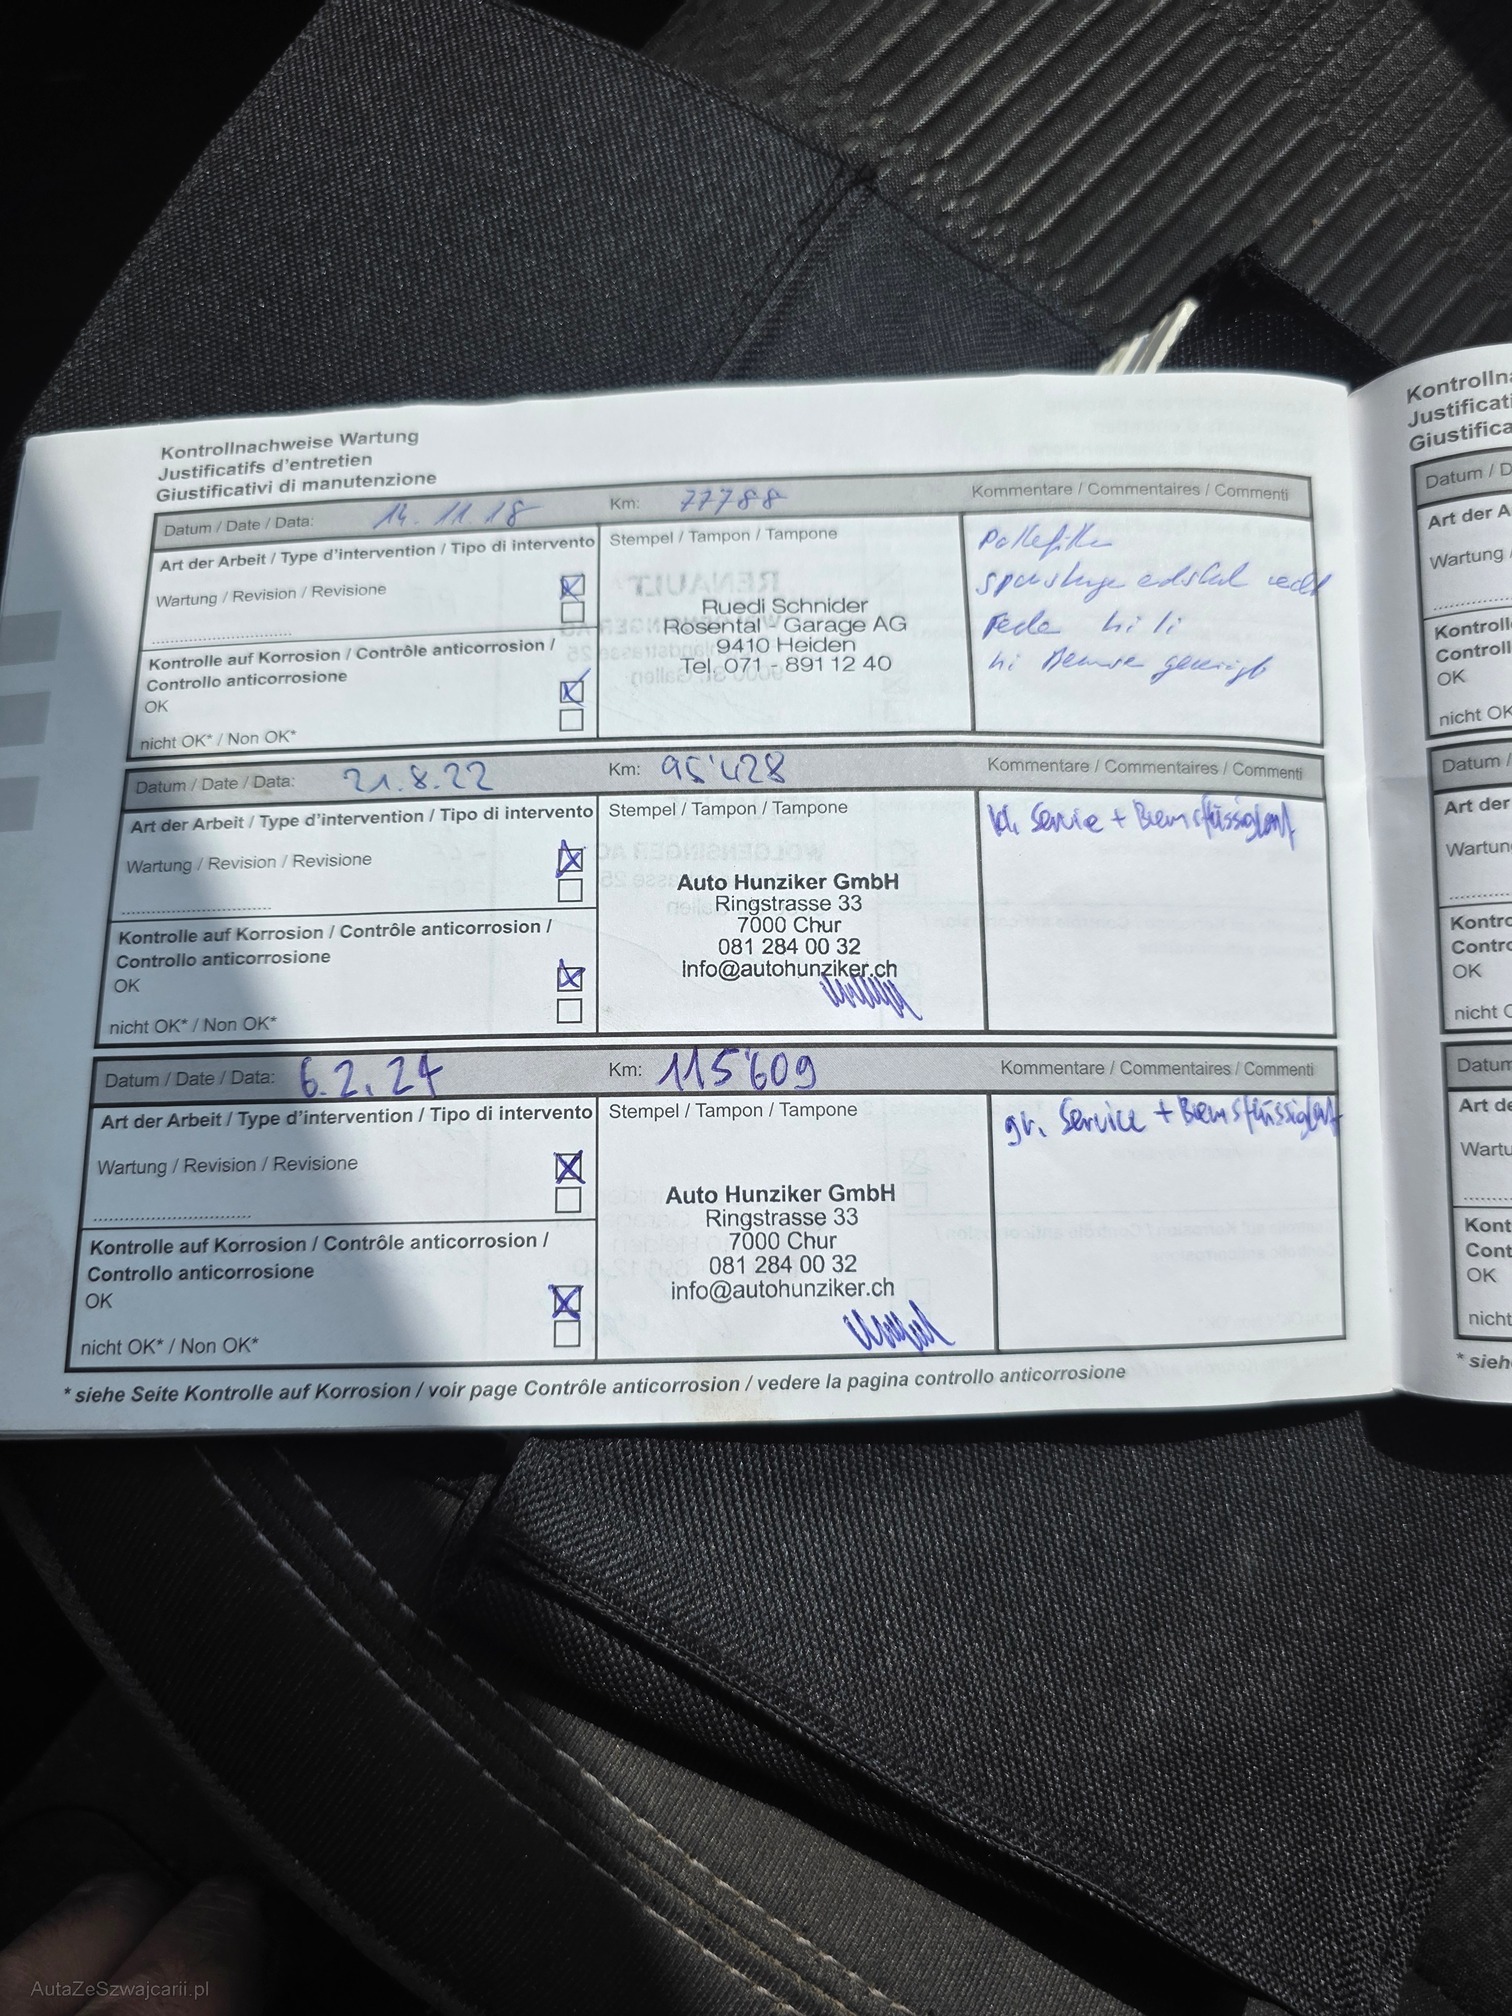 Kontrollnachweise Wartung
Justificatifs d'entretien
Giustificativi di manutenzione
Datum / Date / Data: 14.11.18 Km: 77788 Kommentare / Commentaires / Commenti
Art der Arbeit / Type d'intervention / Tipo di intervento
Wartung / Revision / Revisione
Kontrolle auf Korrosion / Contrôle anticorrosion /
Controllo anticorrosione
OK
nicht OK* / Non OK*
Stempel / Tampon / Tampone
RENAULT
Ruedi Schnider
Rosental - Garage AG
9410 Heiden
Tel. 071 - 891 12 40
Pollefilter
hi li
hi
Datum / Date / Data: 21.8.22 Km: 95'428 Kommentare / Commentaires / Commenti
Art der Arbeit / Type d'intervention / Tipo di intervento
Wartung / Revision / Revisione
Kontrolle auf Korrosion / Contrôle anticorrosion /
Controllo anticorrosione
OK
nicht OK* / Non OK*
Stempel / Tampon / Tampone
Auto Hunziker GmbH
Ringstrasse 33
7000 Chur
081 284 00 32
info@autohunziker.ch
kl. Service + Bremsflüssigkeit
Datum / Date / Data: 6.2.24 Km: 115'609 Kommentare / Commentaires / Commenti
Art der Arbeit / Type d'intervention / Tipo di intervento
Wartung / Revision / Revisione
Kontrolle auf Korrosion / Contrôle anticorrosion /
Controllo anticorrosione
OK
nicht OK* / Non OK*
Stempel / Tampon / Tampone
Auto Hunziker GmbH
Ringstrasse 33
7000 Chur
081 284 00 32
info@autohunziker.ch
gr. Service + Bremsflüssigkeit
* siehe Seite Kontrolle auf Korrosion / voir page Contrôle anticorrosion / vedere la pagina controllo anticorrosione
Datum / D
Art der A
Wartung /
OK
nicht OK
Datum /
Art der
OK
Datum
Art de
OK
nicht
* sieh
AutaZeSzwajcarii.pl